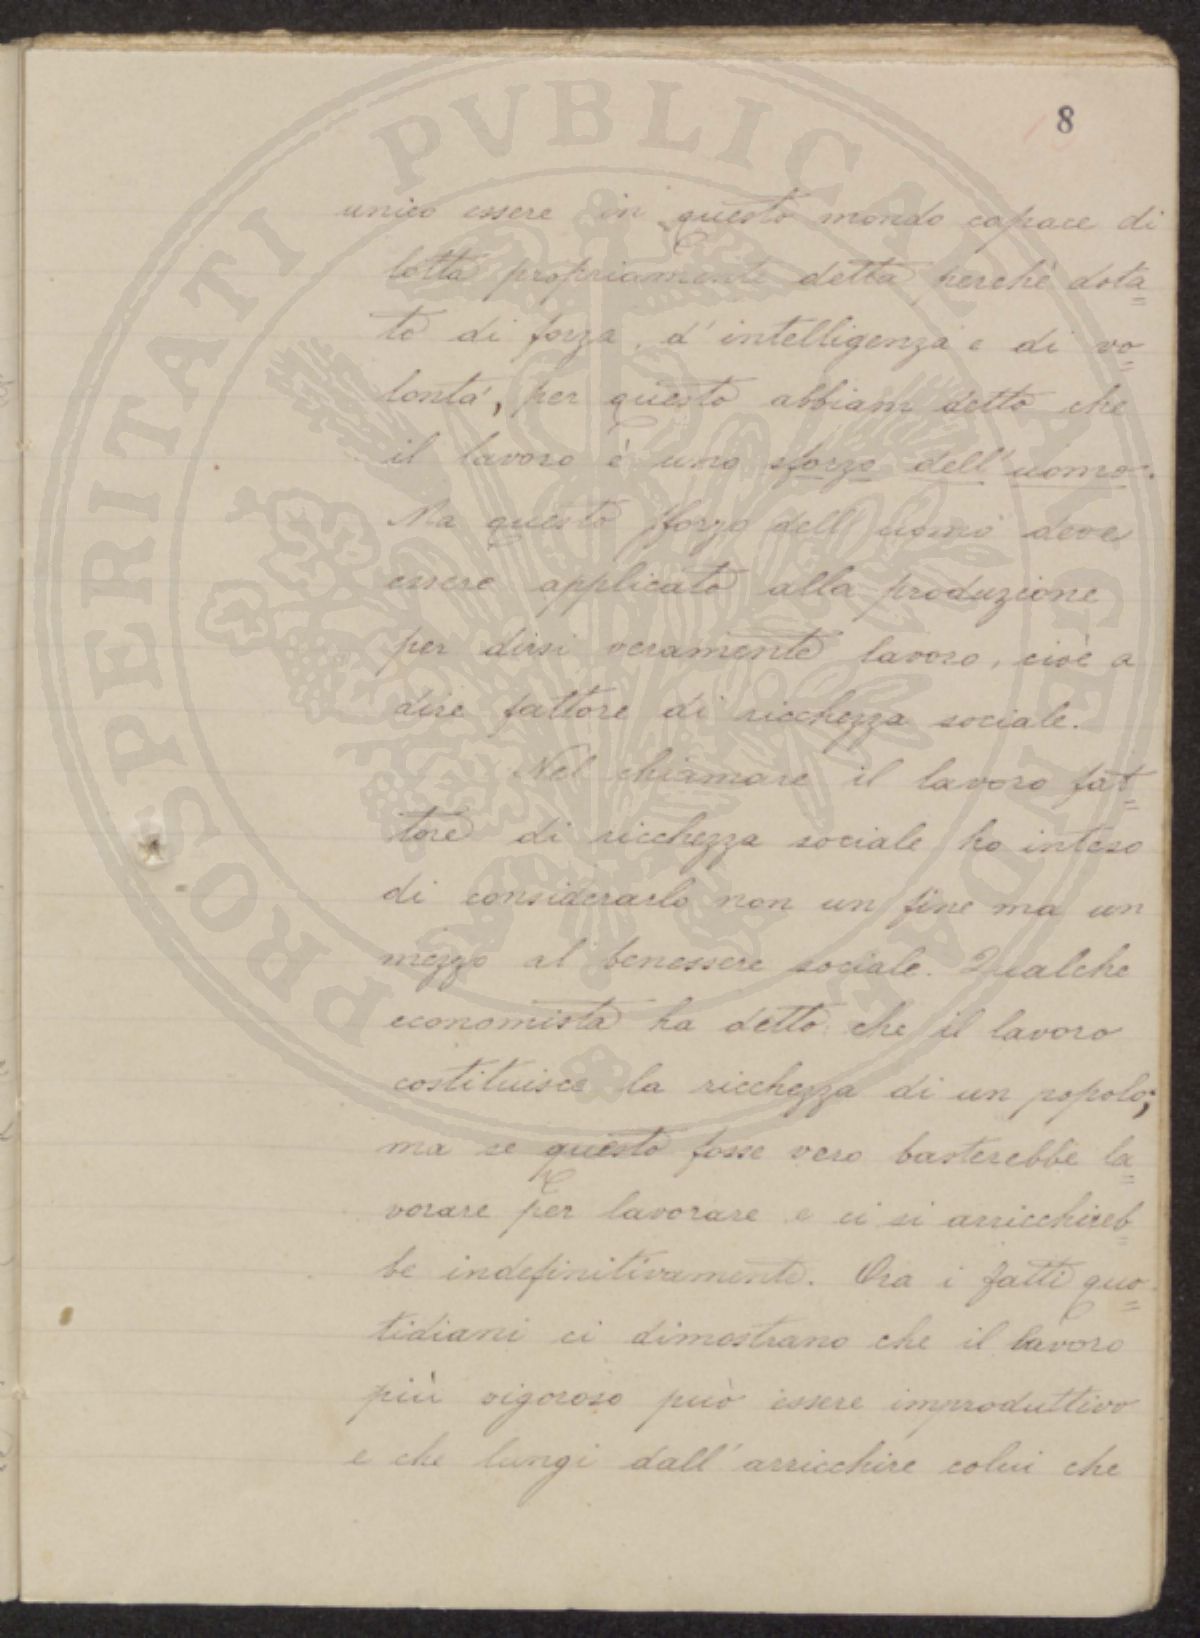 8
unico essere in questo mondo capace di
lotta propriamente detta, perchè dota=
to di forza, d'intelligenza e di vo=
lontà, per questo abbiam detto che
il lavoro è uno sforzo dell'uomo.
Ma questo sforzo dell'uomo deve
essere applicato alla produzione
per dirsi veramente lavoro, cioè a
dire fattore di ricchezza sociale.
Nel chiamare il lavoro fat=
tore di ricchezza sociale ho inteso
di considerarlo non un fine ma un
mezzo al benessere sociale. Qualche
economista ha detto che il lavoro
costituisce la ricchezza di un popolo;
ma se questo fosse vero basterebbe la=
vorare per lavorare e ci si arricchireb=
be indefinitivamente. Ora i fatti quo=
tidiani ci dimostrano che il lavoro
più vigoroso può essere improduttivo
e che lungi dall'arricchire colui che
PROSPERITATI PVBLICAE AVGENDAE